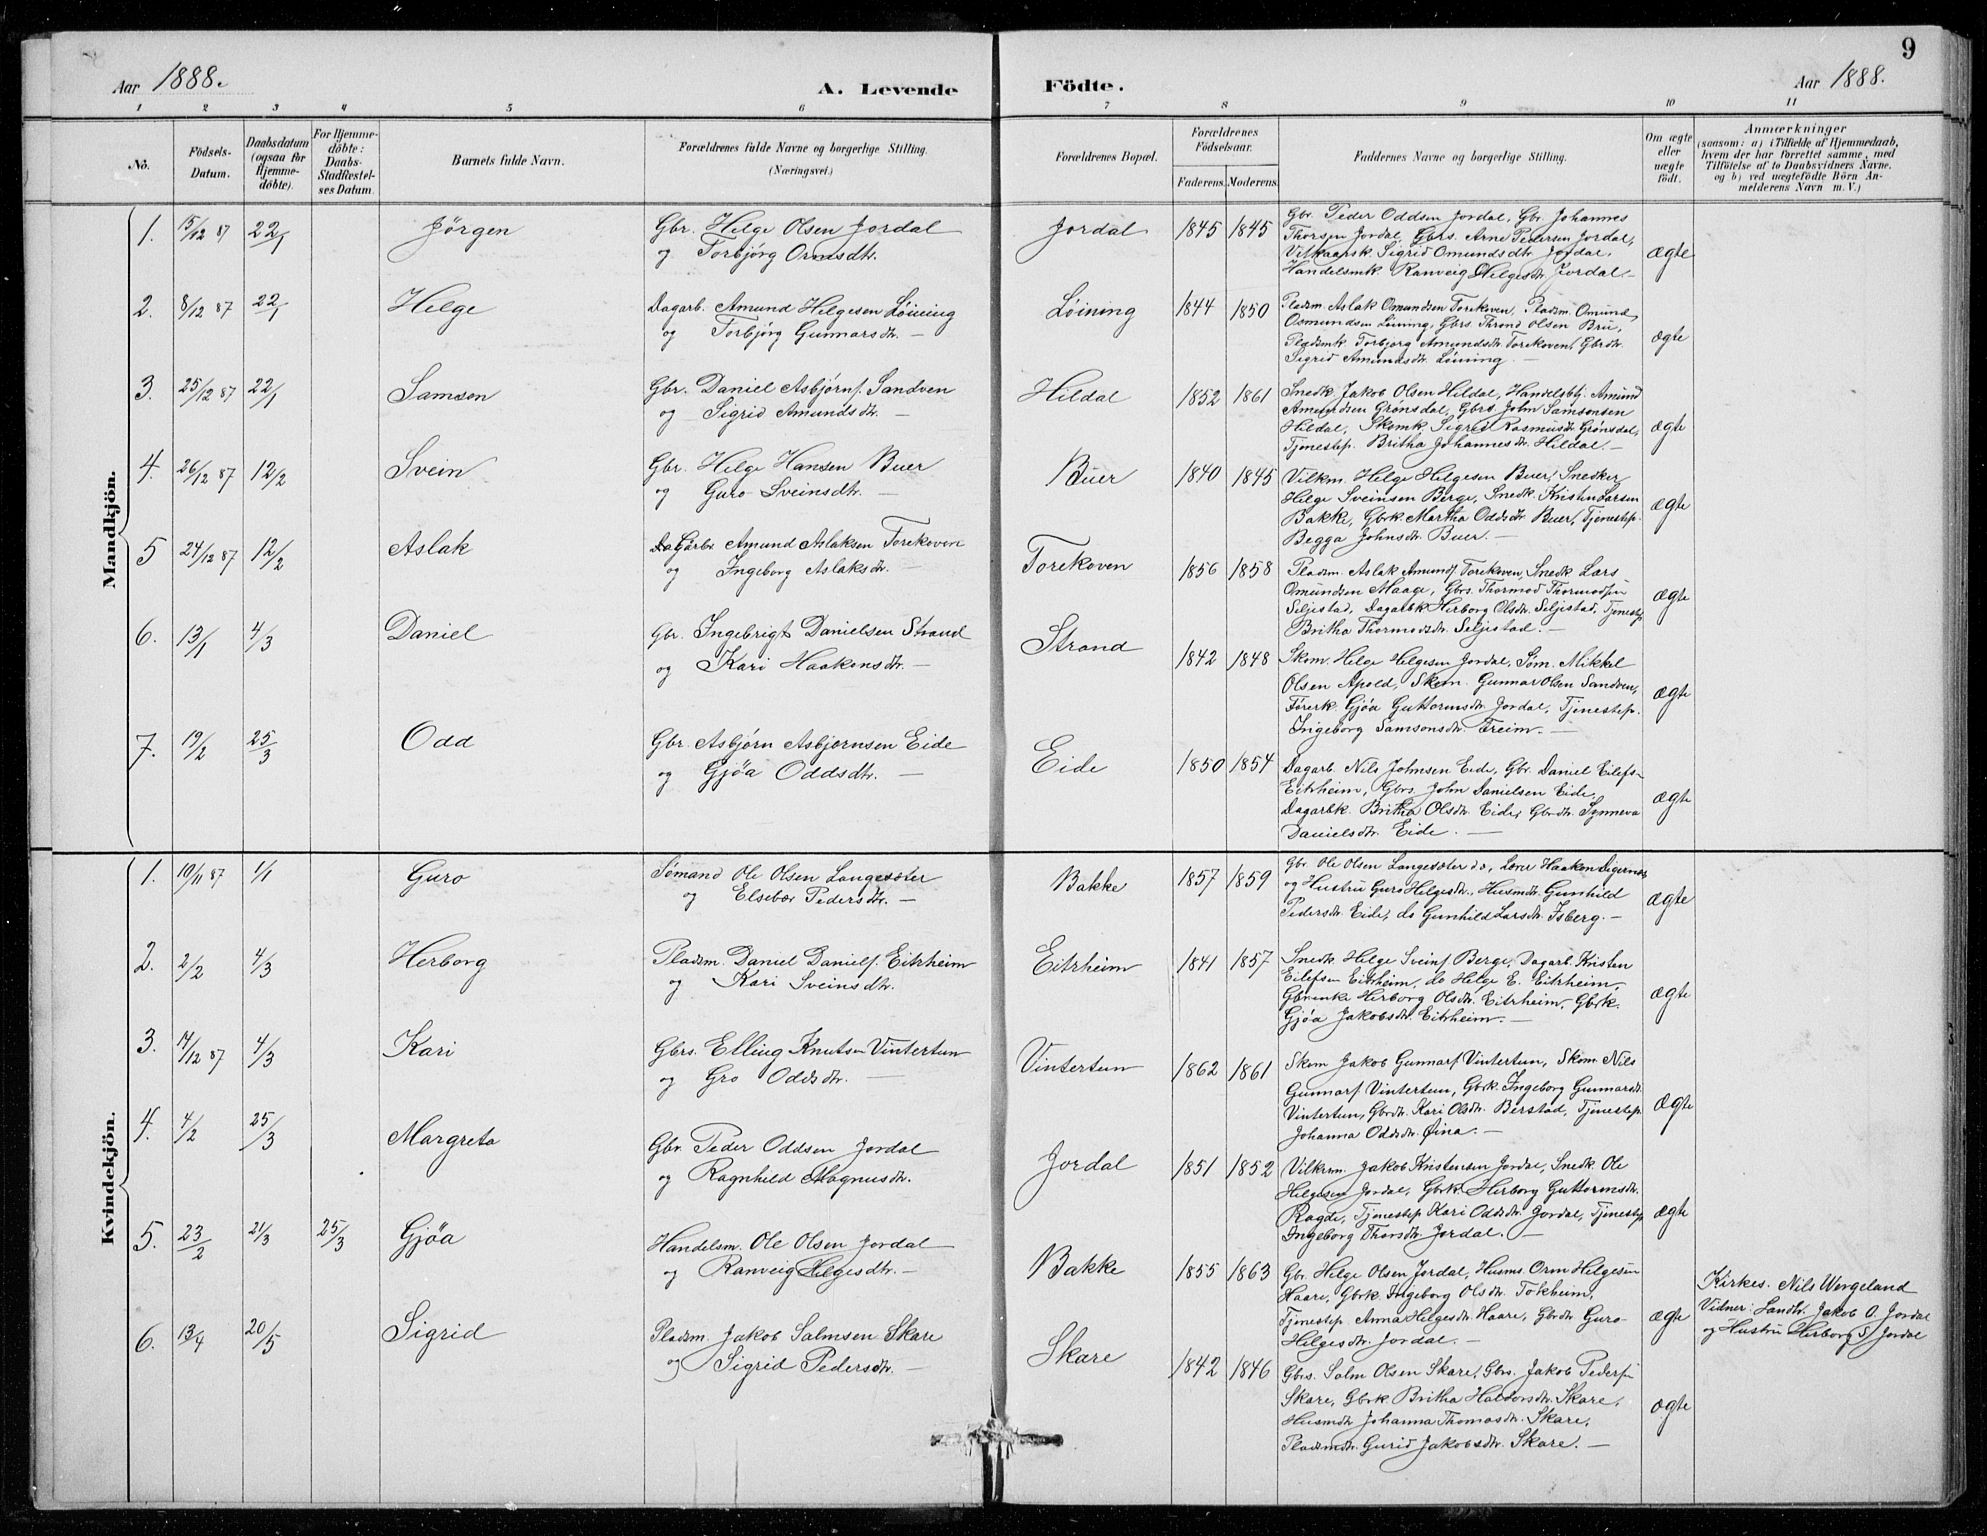 9
Aar 1888.
A. Levende Födte.
Aar 1888.
1 2 3 4 5 6 7 8 9 10 11
No.
Födsels-Datum.
Daabsdatum (ogsaa for Hjemme-døbte).
For Hjemme-døbte: Daabs-Stadfæstel-ses Datum.
Barnets fulde Navn.
Forældrenes fulde Navne og borgerlige Stilling. (Næringsvei.)
Forældrenes Bopæl.
Forældrenes Födselsaar.
Faderens. Moderens.
Faddernes Navne og borgerlige Stilling.
Om ægte eller uægte født.
Anmærkninger
(saasom: a) i Tilfælde af Hjemmedaab,
hvem der har forrettet samme, med
Tilföielse af to Daabsvidners Navne.
og b) ved uægtefödte Börn An-
melderens Navn m. V.)
Mandkjön.
1. 15/12 87 22/1 Jörgen Gbr. Helge Olsen Jordal
og Torbjörg Ormsdtr.
Jordal 1845 1845 Gbr. Peder Oddsen Jordal, Gbr. Johannes
Thorsen Jordal, Gbrs. Arne Pedersen Jordal,
Vilkaarsk. Sigrid Omundsdtr. Jordal,
Handelsmk. Ranveig Helgesdtr. Jordal. —
ægte
2. 8/12 87 22/1 Helge Dagarb. Amund Helgesen Löining
og Torbjörg Gunnarsdtr. —
Löining 1844 1850 Pladsm. Aslak Omundsen Torekoven, Pladsm. Omund
Osmundsen Löining, Gbrs. Thrond Olsen Bru,
Pladsmk. Torbjørg Amundsdtr. Torekoven, Gbrdtr.
Sigrid Amundsdtr. Löining. —
ægte
3. 25/12 87 22/1 Samson Gbr. Daniel Asbjörns. Sandven
og Sigrid Amundsdtr. —
Hildal 1852 1861 Snedk. Jakob Olsen Hildal, Handelsbtj. Amund
Amundsen Grönsdal, Gbrs. John Samsonsen
Hildal, Skomk. Sigrid Rasmusdtr. Grönsdal,
Tjenestep. Britha Johannesdtr. Hildal. —
ægte
4. 26/12 87 12/2 Svein Gbr. Helge Hansen Buer
og Guro Sveinsdtr. —
Buer 1840 1845 Vilkm. Helge Helgesen Buer, Snedker
Helge Sveinsen Berge, Snedk. Kristen Larsen
Bakke, Gbrk. Martha Oddsdtr. Buer, Tjenestep.
Begga Johnsdtr. Buer. —
ægte
5 24/12 87 12/2 Aslak Dagarbr. Amund Aslaksen Torekoven
og Ingeborg Aslaksdtr. —
Torekoven 1856 1858 Pladsm. Aslak Amunds. Torekoven, Snedk. Lars
Omundsen Maage, Gbrs. Thormod Thormodsen
Seljestad, Dagarbk. Herborg Olsdtr. Seljestad, Tjenestep.
Britha Thormodsdtr. Seljestad. —
ægte
6. 13/1 4/3 Daniel Gbr. Ingebrigt Danielsen Strand
og Kari Haakonsdtr. —
Strand 1842 1848 Skom. Helge Helgesen Jordal, Söm. Mikkel
Olsen Apold, Skom. Gunnar Olsen Sandven,
Förerk. Gjöa Guttormsdtr. Jordal, Tjenestep.
Ingeborg Samsonsdtr. Freim. —
ægte
7. 19/2 25/3 Odd Gbr. Asbjörn Asbjørnsen Eide
og Gjöa Oddsdtr. —
Eide 1850 1854 Dagarb. Nils Johnsen Eide, Gbr. Daniel Eilefsn
Eitrheim, Gbrs. John Danielsen Eide,
Dagarbk. Britha Olsdtr. Eide, Gbrdtr. Synneva
Danielsdtr. Eide. —
ægte
Kvindekjön.
1. 10/11 87 1/1 Guro Sömand Ole Olsen Langesæter
og Elsebø Pedersdtr. —
Bakke 1857 1859 Gbr. Ole Olsen Langesæter do, Lærer Haakon Digernæs
og Hustru Guro Helgesdtr., Husmdtr. Gunhild
Pedersdtr. Eide, do Gunhild Larsdtr. Isberg. —
ægte
2. 2/2 4/3 Herborg Pladsm. Daniel Daniels. Eitrheim
og Kari Sveinsdtr.
Eitrheim 1841 1857 Snedk. Helge Sveins. Berge, Dagarb. Kristen
Eilefsen Eitrheim, do Helge E. Eitrheim,
Gbrenke Herborg Olsdtr. Eitrheim, Gbrk.
Gjöa Jakobsdtr. Eitrheim. —
ægte
3. 14/12 87 4/3 Kari Gbrs. Elling Knutsen Vintertun
og Gro Oddsdtr. —
Vintertun 1862 1861 Skom. Jakob Gunnars. Vintertun, Skom. Nils
Gunnars. Vintertun, Gbrk. Ingeborg Gunnarsdtr.
Vintertun, Gbrdtr. Kari Olsdtr. Berstad, Tjenestep.
Johanna Oddsdtr. Øina. —
ægte
4. 4/2 25/3 Margreta Gbr. Peder Oddsen Jordal
og Ragnhild Magnusdtr.
Jordal 1851 1852 Vilkrm. Jakob Kristensen Jordal, Snedk. Ole
Helgesen Jordal, Gbrk. Herborg Guttormsdtr.
Ragde, Tjenestep Kari Oddsdtr. Jordal, Tjenestep.
Ingeborg Thorsdtr. Jordal. —
ægte
5. 23/2 21/3 25/3 Gjöa Handelsm. Ole Olsen Jordal
og Ranveig Helgesdtr. —
Bakke 1855 1863 Gbr. Helge Olsen Jordal, Husms. Orm Helgesen
Haare, Gbrk. Ingeborg Olsdtr. Tokheim,
Tjenestep. Anna Helgesdtr. Haare, Gbrdtr. Guro
Helgesdtr. Jordal. —
ægte
Kirkes. Nils Wergeland
Vidner: Landhr. Jakob O. Jordal
og Hustru Herborg S. Jordal
6. 13/4 20/5 Sigrid Pladsm. Jakob Salmsen Skare
og Sigrid Pedersdtr. —
Skare 1842 1846 Gbrs. Salm Olsen Skare, Gbrs. Jakob Pedersn
Skare, Gbrk. Britha Haldorsdtr. Skare,
Husmdtr. Johanna Thomasdtr. Skare,
Pladsmdtr. Gurid Jakobsdtr. Skare. —
ægte